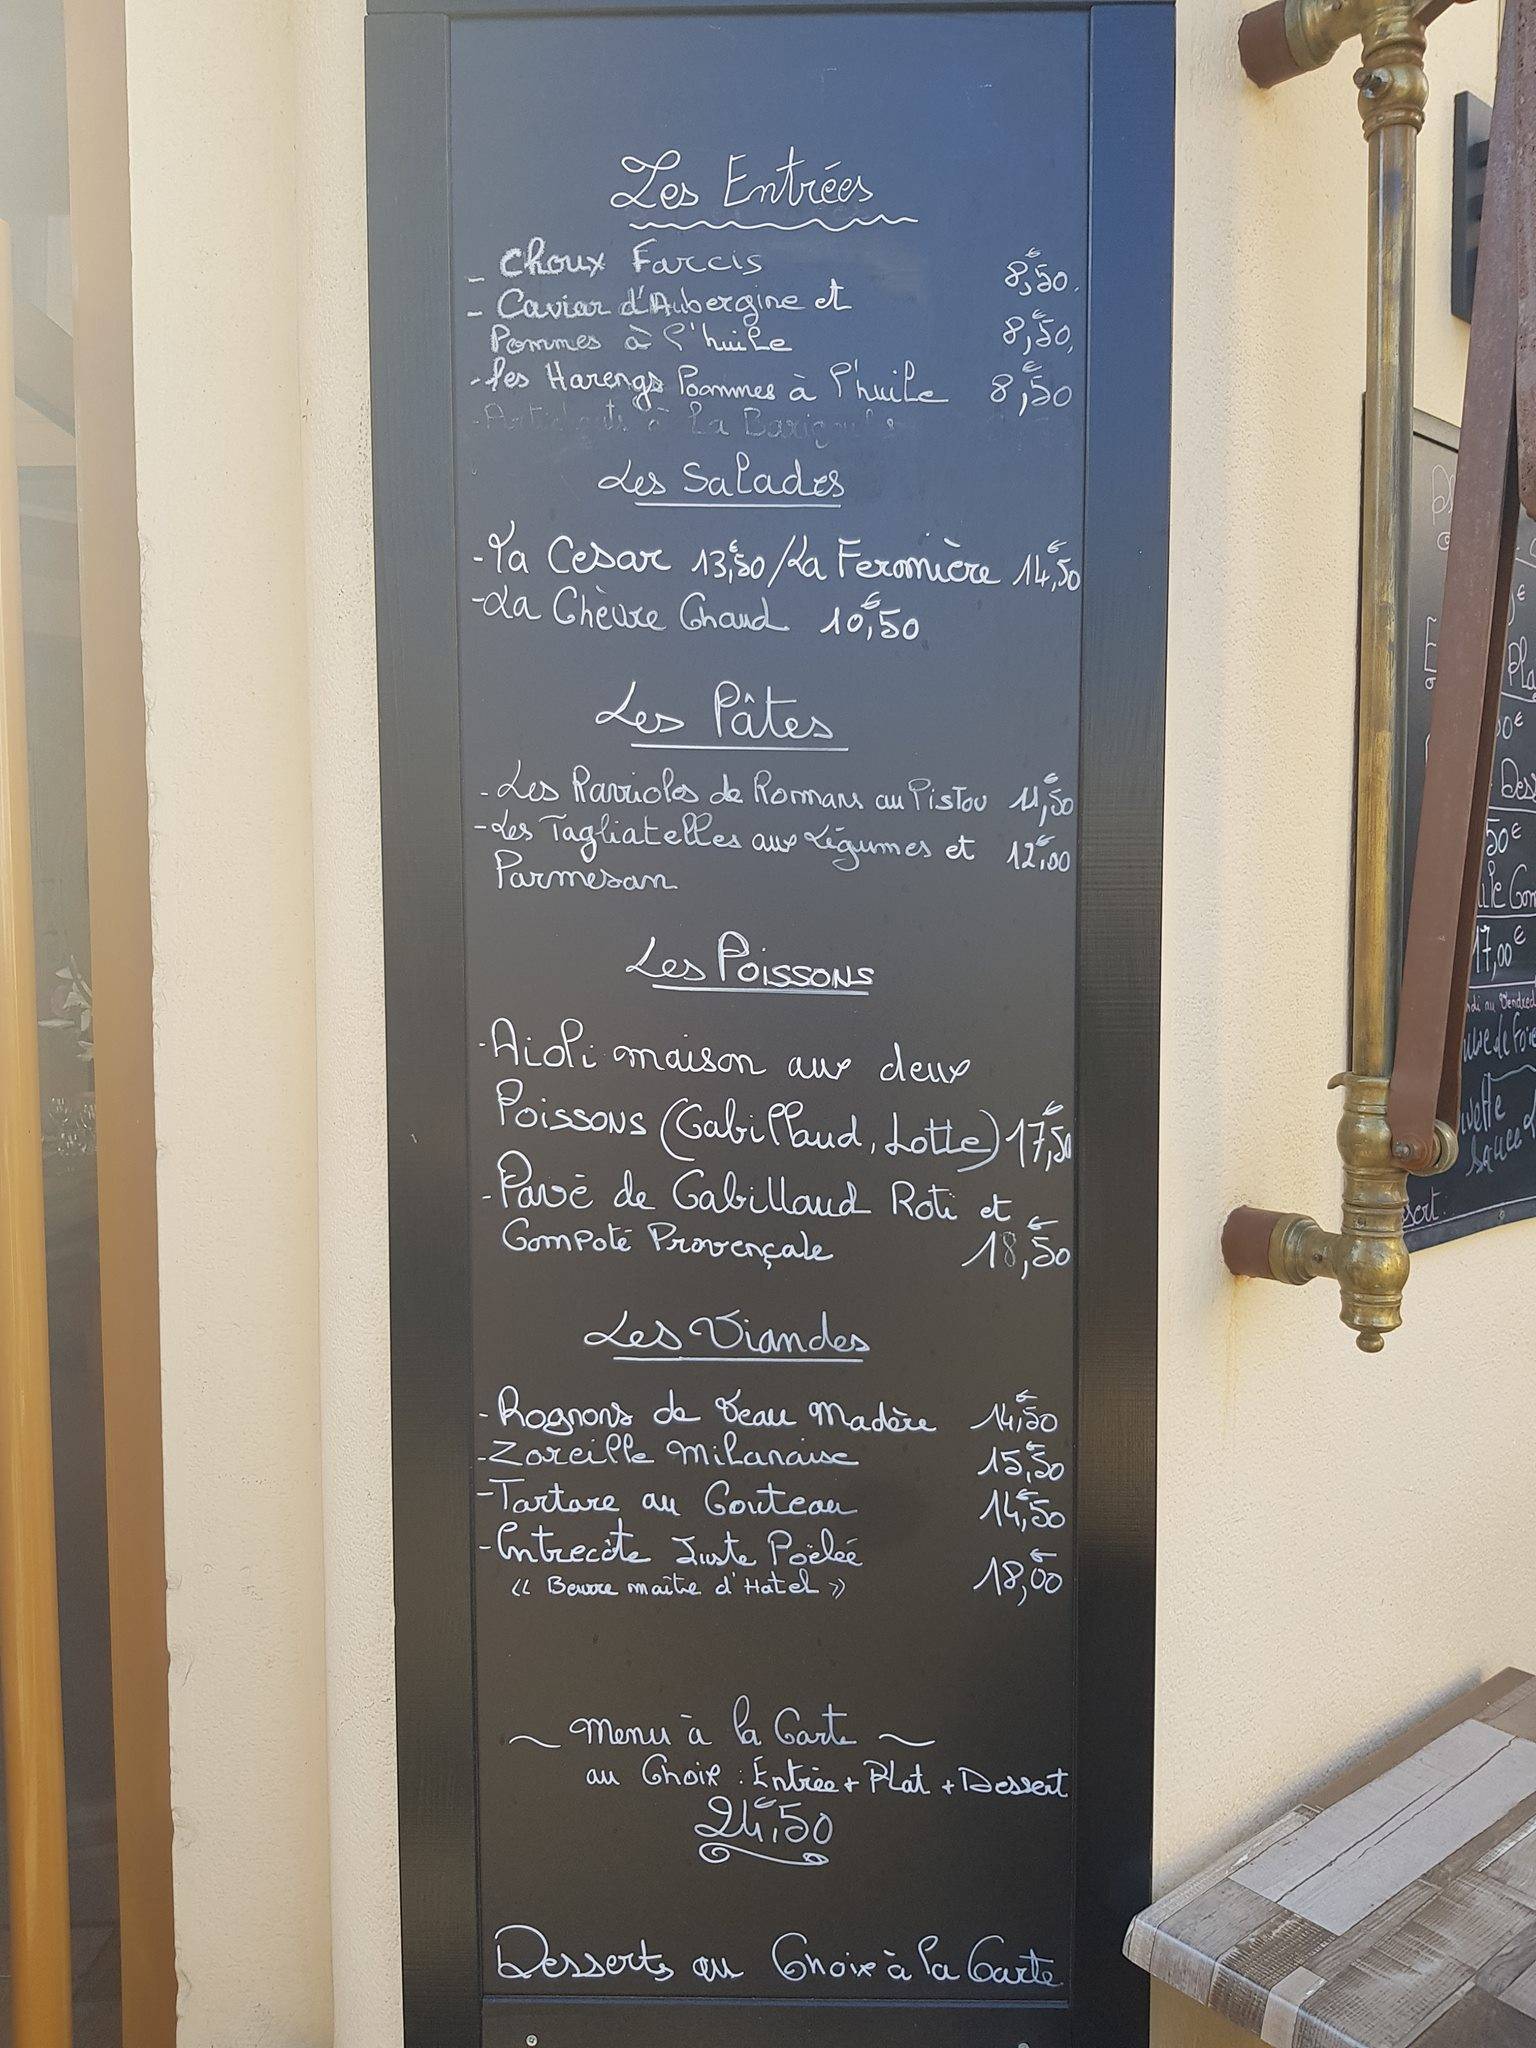 Les Entrées
- Choux Farcis 8,50€
- Caviar d'Aubergine et
Pommes à l'huile 8,50€
- les Harengs Poommes à l'huile 8,50€
- à la
Les Salades
- La Cesar 13,50€ / La Fermière 14,50€
- La Chèvre Chaud 10,50€
Les Pâtes
- Les Ravioles de Romans au Pistou 11,50€
- Les Tagliatelles aux Légumes et 12,00€
Parmesan
Les Poissons
- Aioli maison aux deux
Poissons (Cabillaud, Lotte) 17,50€
- Pavé de Cabillaud Roti et
Compoté Provençale 18,50€
Les Viandes
- Rognons de Veau Madère 14,50€
- Zoreille Milanaise 15,50€
- Tartare au Couteau 14,50€
- Entrecôte Juste Poëlée 18,00€
« Beurre maître d'Hotel »
~ Menu à la Carte ~
au Choix : Entrée + Plat + Dessert
24,50€
Desserts au Choix à la Carte
50€
17,00€
sauce